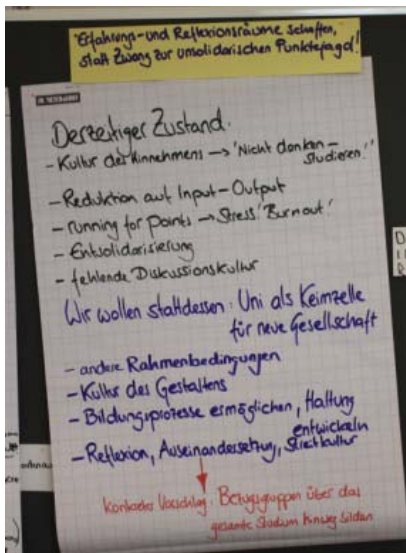 "Erfahrungs- und Reflexionsräume schaffen,
statt Zwang zur unsolidarischen Punktejagd!
Derzeitiger Zustand:
- Kultur des Hinnehmens → 'Nicht denken -
studieren!'
- Reduktion auf Input-Output
- running for points → Stress! Burnout!
- Entsolidarisierung
- fehlende Diskussionskultur
Wir wollen stattdessen: Uni als Keimzelle
für neue Gesellschaft
- andere Rahmenbedingungen
- Kultur des Gestaltens
- Bildungsprozesse ermöglichen, Haltung
entwickeln
- Reflexion, Auseinandersetzung, Streitkultur
konkreter Vorschlag: Bezugsgruppen über das
gesamte Studium hinweg bilden